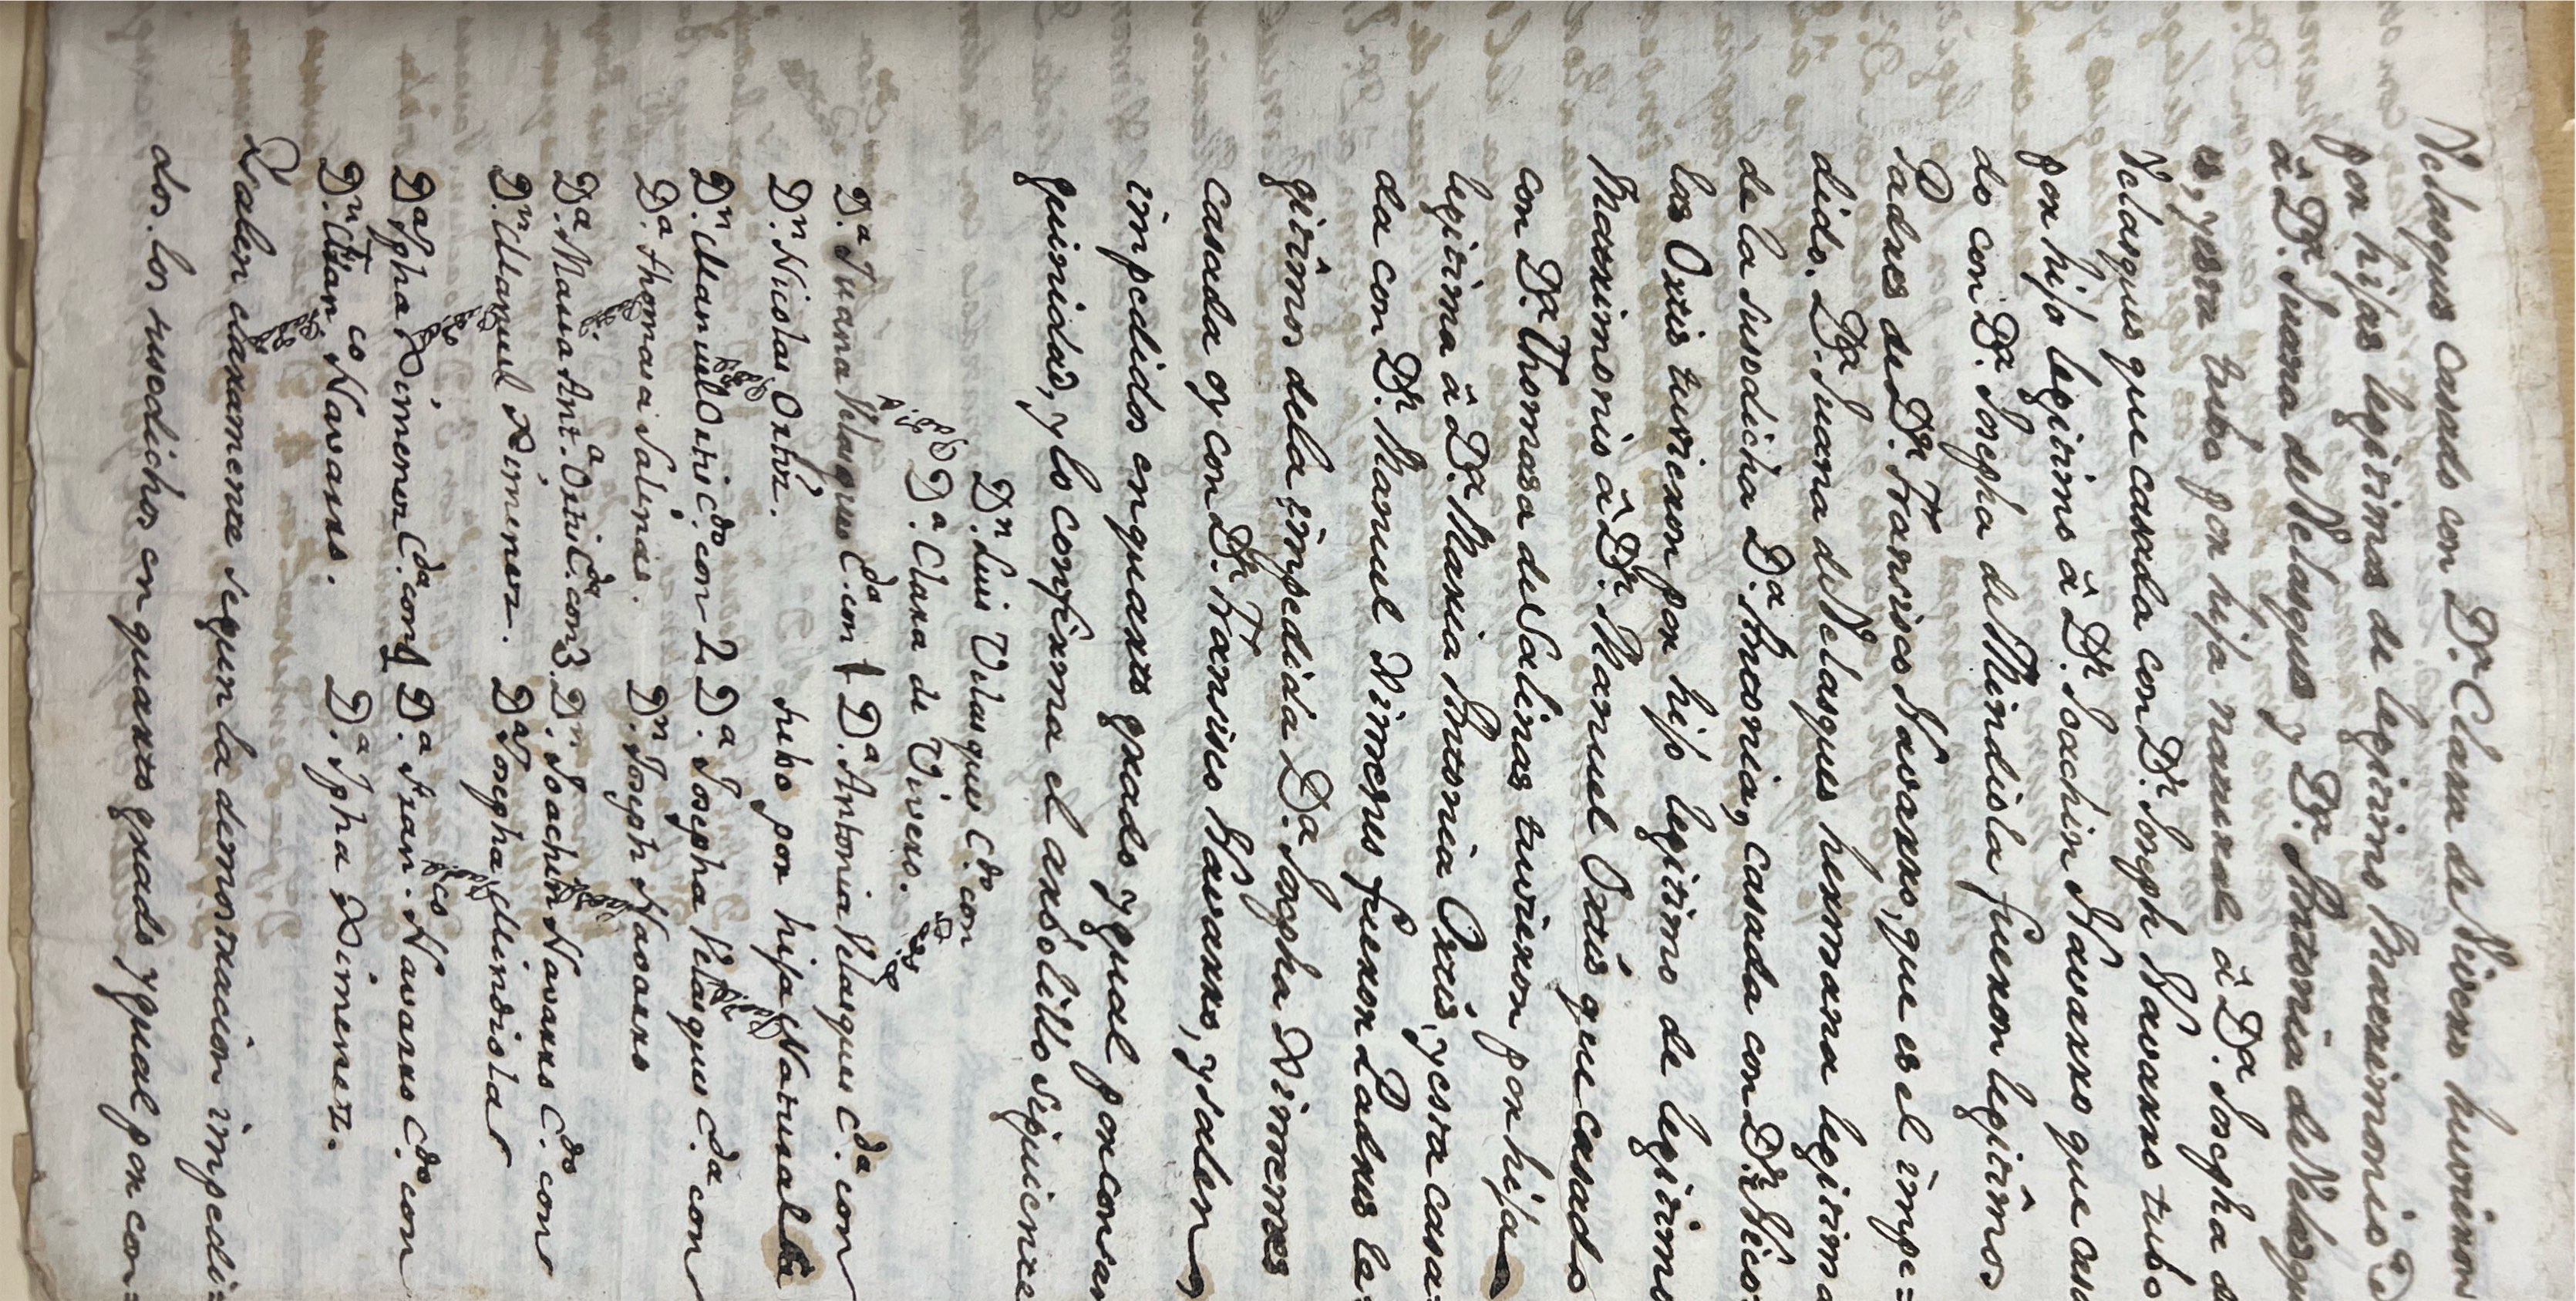 Velasques casado con D.ª Clara de Vivero huvieron
por hijas legitimas de legitimo Matrimonio
â D.ª Juana de Velasques y D.ª Antonia de Velasqu
es, y esta tubo por hija natural â D.ª Josepha de
Velasques que casada con D.ⁿ Joseph Navarro tubo
por hijo legitimo â D.ⁿ Joachin Navarro que casa
do con D.ª Josepha de Mindiola fueron legitîmos
Padres de D.ⁿ Fransisco Navarro, que es el impe=
dido. D.ª Juana de Velasques hermana legitima
de la susodicha D.ª Antonia, casada con D.ⁿ Nico=
las Ortis tuvieron por hijo legitimo de legitimo
Matrimonio â D.ⁿ Manuel Ortís que casado
con D.ª Thomasa de Salinas tuvieron por hija
legitima â D.ª Maria Antonia Ortís, y esta casa=
da con D.ⁿ Manuel Ximenes fueron Padres le=
gitîmos dela impedida D.ª Josepha Ximenes
casada oy con D.ⁿ Fransisco Navarro, y salen
impedidos en quarto grado y gual por consan
guinidad, y lo confirma el arbolillo siguiente
D.ⁿ Luis Velasques C.ᵈᵒ con
D.ª Clara de Vivero.
D.ª Juana Velasques C.ᵈᵃ con 1 D.ª Antonia Velasques C.ᵈᵃ con
D.ⁿ Nicolas Ortíz. tubo por hija Natural a
D.ⁿ Manuel Ortis C.ᵈᵒ con 2 D.ª Josepha Velasques C.ᵈᵃ con
D.ª thomasa Salinas. D.ⁿ Joseph Navarro
D.ª Maria Ant.ª Ortis C.ᵈᵃ con 3. D.ⁿ Joachin Navarro C.ᵈᵒ con
D.ⁿ Manuel Ximenez. D.ª Josepha Mindiola
D.ª Jpha Ximenez C.ᵈᵃ con 4 D.ª Fran.ᶜᵒ Navarro C.ᵈᵒ con
D.ⁿ Fran.ᶜᵒ Navarro. D.ª Jpha Ximenez.
Y salen claramente segun la demostracion impedi=
dos los susodichos en quarto grado y gual por con=